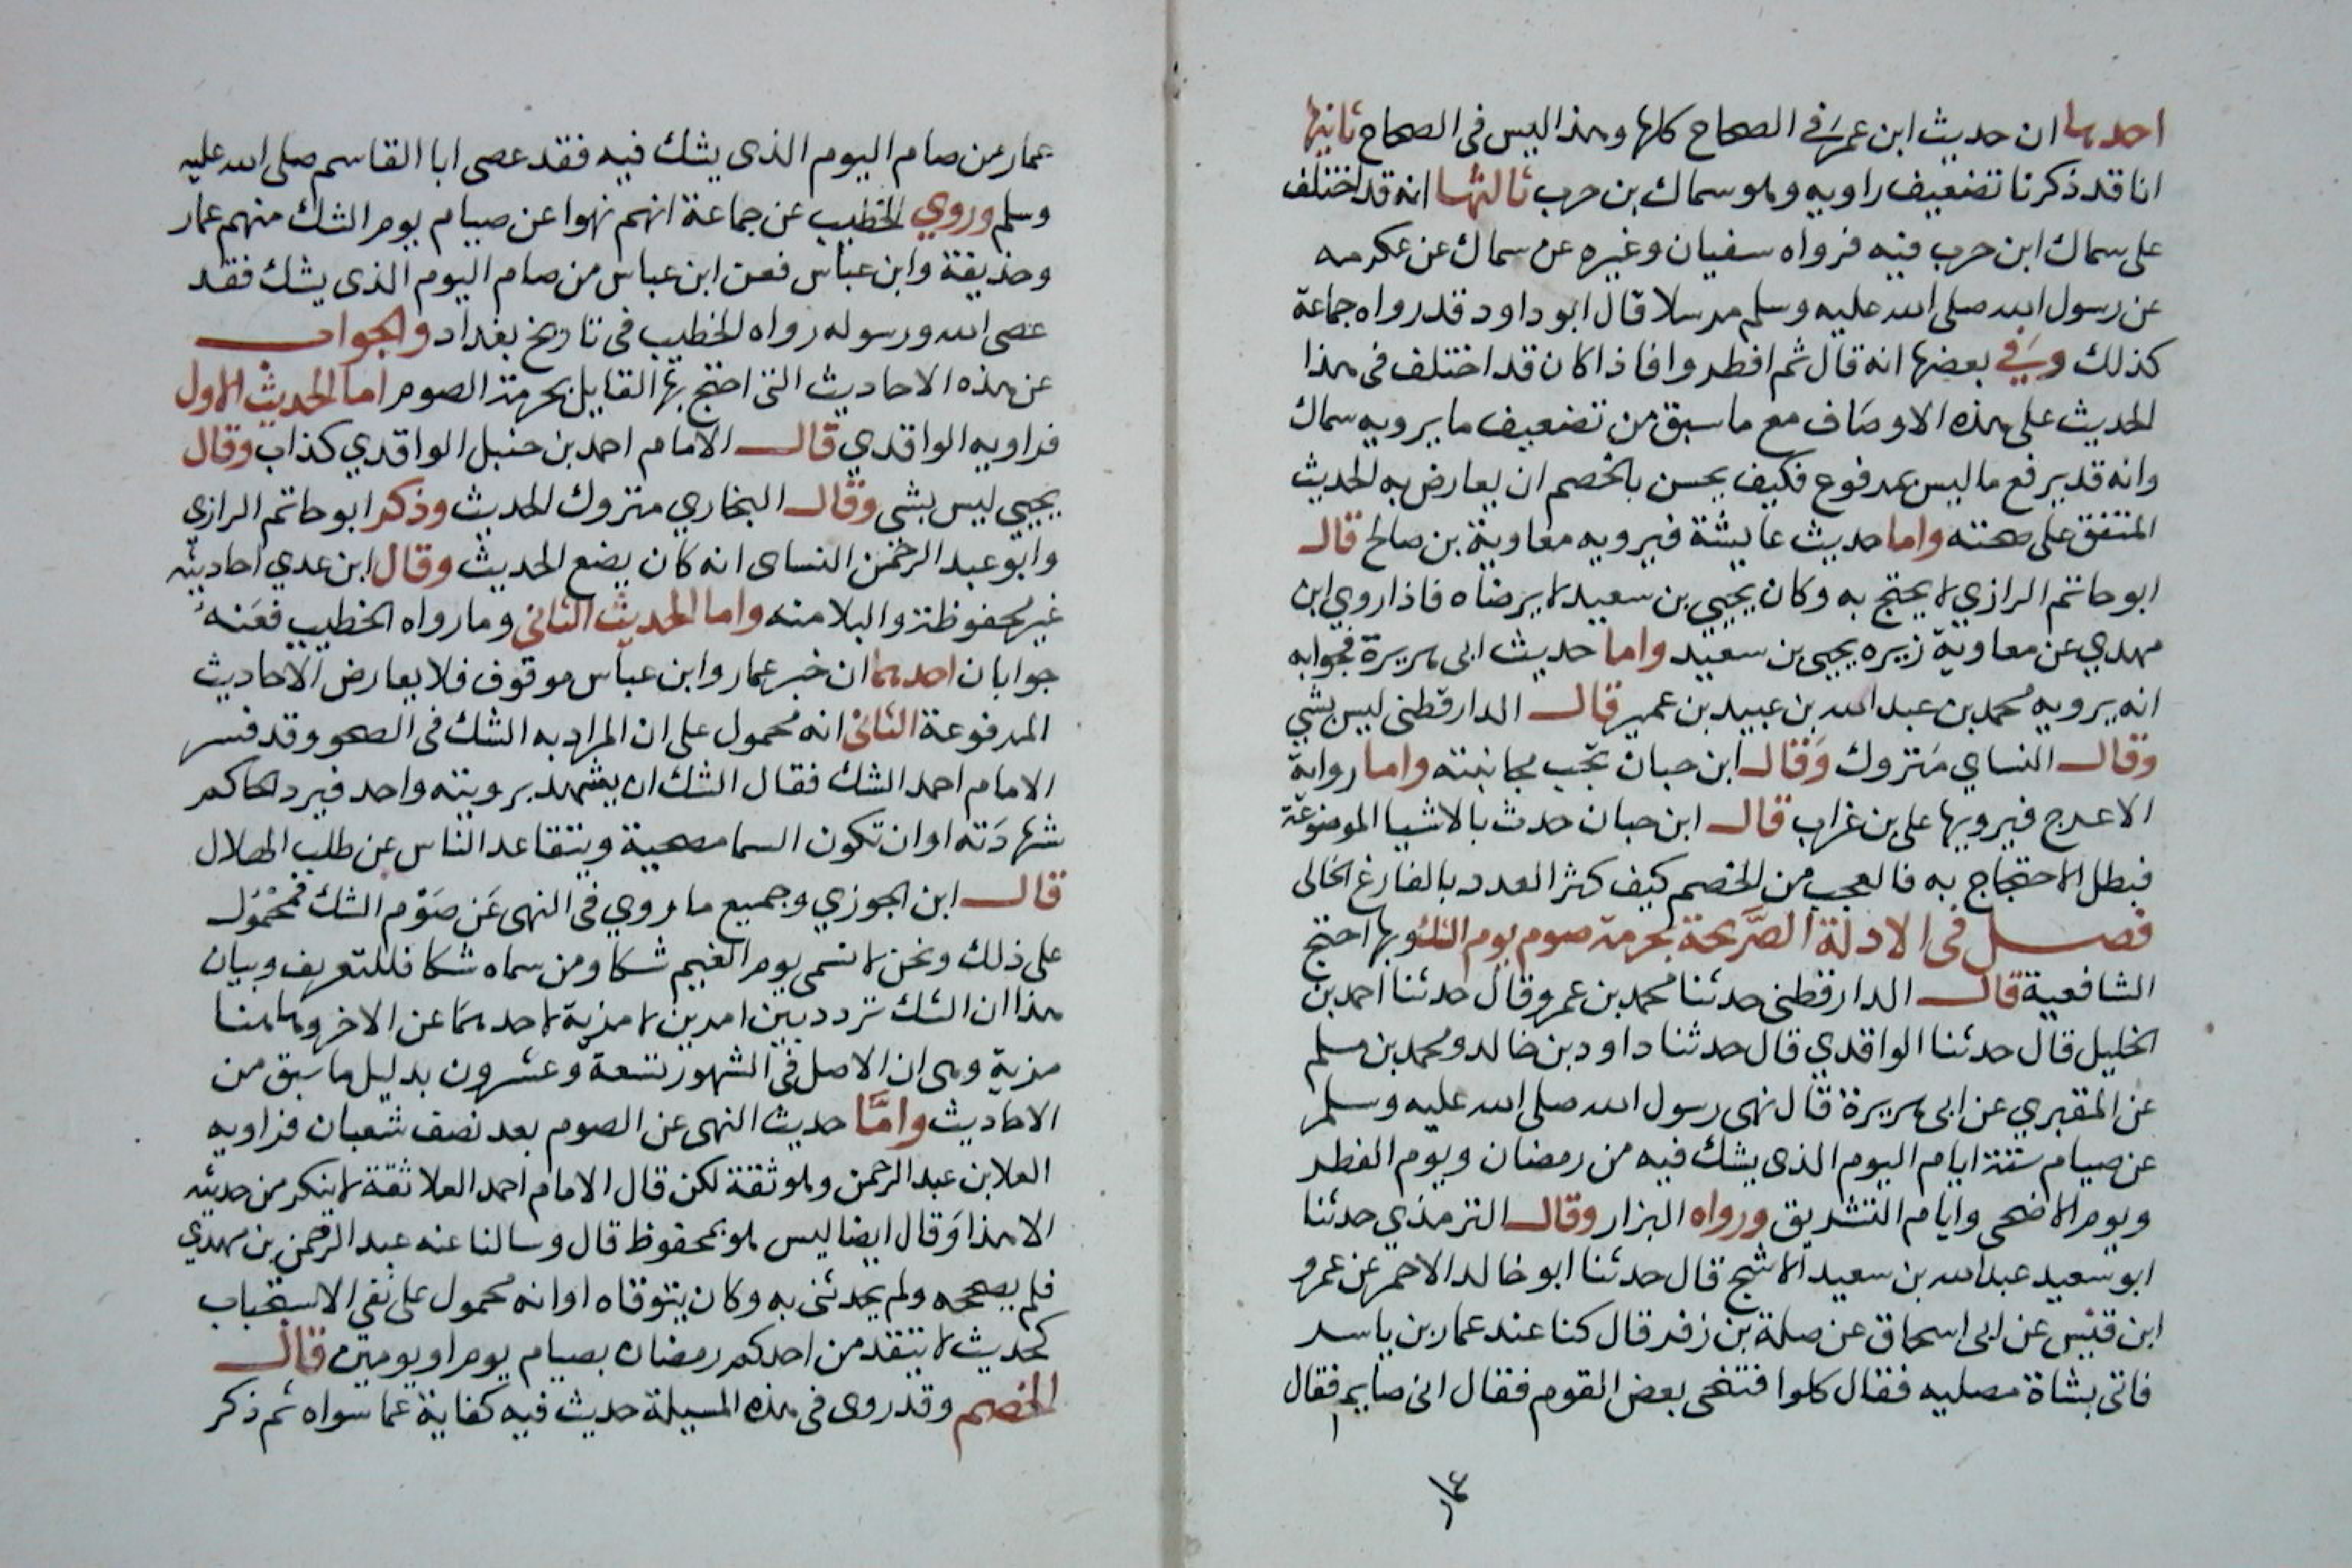 احدها ان حديث ابن عمر في الصحاح كلها وهذا ليس في الصحاح ثانيها
انا قد ذكرنا تضعيف راويه وهو سماك بن حرب ثالثها انه قد اختلف
على سماك ابن حرب فيه فرواه سفيان وغيره عن سماك عن عكرمه
عن رسول الله صلى الله عليه وسلم مرسلا قال ابو داود قد رواه جماعة
كذلك وفي بعضها انه قال ثم افطروا فاذا كان قد اختلف في هذا
الحديث على هذه الاوصاف مع ما سبق من تضعيف ما يرويه سماك
وانه قد يرفع ما ليس بمرفوع فكيف يحسن بالخصم ان يعارض به الحديث
المتفق على صحته واما حديث عايشة فيرويه معاوية بن صالح قال
ابو حاتم الرازي لا يحتج به وكان يحيي بن سعيد لا يرضاه فاذا روي ابن
مهدي عن معاوية زبره يحيى بن سعيد واما حديث ابى هريرة فجوابه
انه يرويه محمد بن عبد الله بن عبيد بن عمير قال الدارقطنى ليس بشي
وقال النساي متروك وقال ابن حبان تجب مجانبته واما رواية
الاعرج فيرويها على بن غراب قال ابن حبان حدث بالاشيا الموضوعة
فبطل الاحتجاج به فالعجب من الخصم كيف كثر العدد بالفارغ الخالى
فصل في الادلة الصريحة بحرمة صوم يوم الشك وبها احتج
الشافعية قال الدارقطنى حدثنا محمد بن عمرو قال حدثنا احمد بن
الخليل قال حدثنا الواقدي قال حدثنا داود بن خالد ومحمد بن مسلم
عن المقبري عن ابى هريرة قال نهى رسول الله صلى الله عليه وسلم
عن صيام ستة ايام اليوم الذى يشك فيه من رمضان ويوم الفطر
ويوم الاضحى وايام التشريق ورواه البزار وقال الترمذي حدثنا
ابو سعيد عبد الله بن سعيد الاشج قال حدثنا ابو خالد الاحمر عن عمرو
ابن قيس عن ابى اسحاق عن صلة بن زفر قال كنا عند عمار بن ياسر
فاتى بشاة مصليه فقال كلوا فتنحى بعض القوم فقال انى صايم فقال
عمار من صام اليوم الذى يشك فيه فقد عصى ابا القاسم صلى الله عليه
وسلم وروي الخطيب عن جماعة انهم نهوا عن صيام يوم الشك منهم عمار
وحذيفة وابن عباس فعن ابن عباس من صام اليوم الذى يشك فقد
عصى الله ورسوله رواه الخطيب في تاريخ بغداد والجواب
عن هذه الاحاديث التى احتج بها القايل بحرمة الصوم اما الحديث الاول
فراويه الواقدي قال الامام احمد بن حنبل الواقدي كذاب وقال
يحيي ليس بشى وقال البخاري متروك الحديث وذكر ابو حاتم الرازي
وابو عبد الرحمن النساى انه كان يضع الحديث وقال ابن عدي احاديثه
غير محفوظة والبلا منه واما الحديث الثانى وما رواه الخطيب فعنه
جوابان احدهما ان خبر عمار وابن عباس موقوف فلا يعارض الاحاديث
المرفوعة الثانى انه محمول على ان المراد به الشك في الصحو وقد فسر
الامام احمد الشك فقال الشك ان يشهد برويته واحد فيرد الحاكم
شهادته او ان تكون السما مصحية ويتقاعد الناس عن طلب الهلال
قال ابن الجوزي وجميع ما روي في النهى عن صوم الشك فمحمول
على ذلك ونحن لا نسمى يوم الغيم شكا ومن سماه شكا فللتعريف وبيان
هذا ان الشك تردد بين امرين لا مزية لاحدهما عن الاخر وهاهنا
مزية وهى ان الاصل في الشهور تسعة وعشرون بدليل ما سبق من
الاحاديث واما حديث النهى عن الصوم بعد نصف شعبان فراويه
العلا بن عبد الرحمن وهو ثقة لكن قال الامام احمد العلا ثقة لا ينكر من حديثه
الا هذا وقال ايضا ليس هو بمحفوظ قال وسالنا عنه عبد الرحمن بن مهدي
فلم يصححه ولم يحدثنى به وكان يتوقاه او انه محمول على نفى الاستحباب
كحديث لا يتقدمن احدكم رمضان بصيام يوم او يومين قال
الخصم وقد روى في هذه المسيلة حديث فيه كفاية عما سواه ثم ذكر